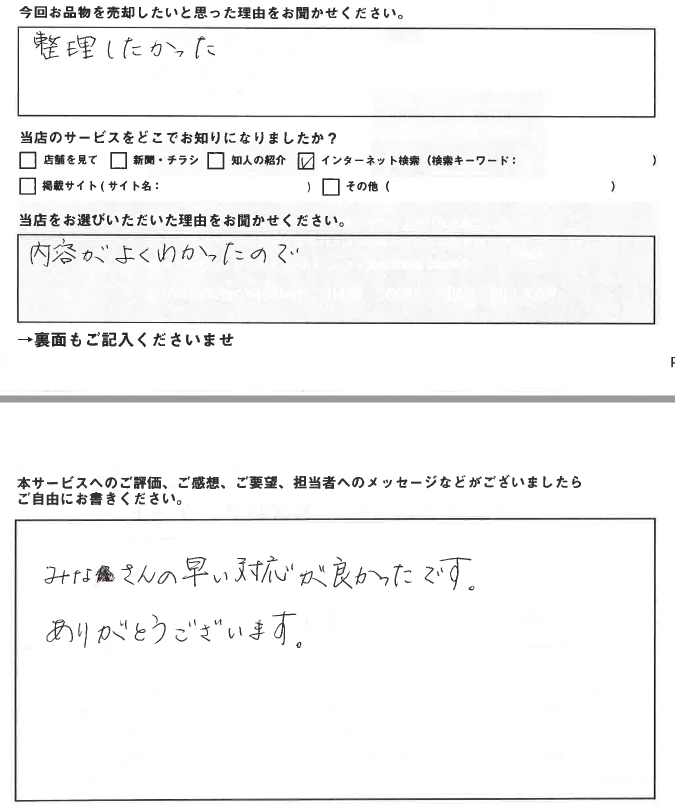 今回お品物を売却したいと思った理由をお聞かせください。
整理したかった
当店のサービスをどこでお知りになりましたか？
□ 店舗を見て □ 新聞・チラシ □ 知人の紹介 ☑ インターネット検索（検索キーワード： ）
□ 掲載サイト(サイト名： ） □ その他（ ）
当店をお選びいただいた理由をお聞かせください。
内容がよくわかったので
→裏面もご記入くださいませ
本サービスへのご評価、ご感想、ご要望、担当者へのメッセージなどがございましたら
ご自由にお書きください。
みなさんの早い対応が良かったです。
ありがとうございます。